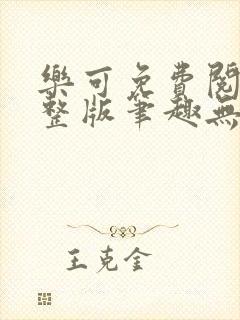 樂可免費閱
整版筆趣無
王克金